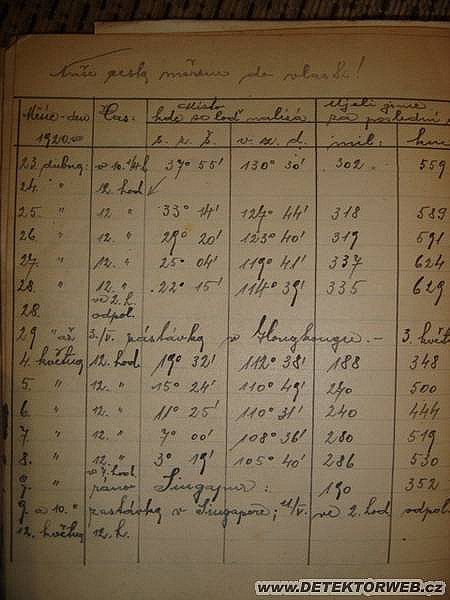 Naše cesta mořem do vlasti!
Měsíc-den Čas: Místo kde se loď nalézá Ujeli jsme za poslední
1920. s. z. š. v. z. d. mil: km
23. dubna: v 10.¼ h 37° 55' 130° 30' 302 559
24. " 12. hod
25. " 12. " 33° 14' 127° 44' 318 589
26. " 12. " 29° 20' 123° 40' 319 591
27. " 12. " 25° 04' 119° 41' 337 624
28. " 12. " 22° 15' 114° 39' 335 629
28. ve 2. h. odpol.
29 " až 3./V. zástávka v Hongkongu.- 3. květ
4. květng 12. hod. 19° 32' 112° 38' 188 348
5. " 12. " 15° 24' 110° 49' 270 500
6. " 12. " 11° 25' 110° 31' 240 444
7. " 12. " 7° 00' 108° 36' 280 519
8. " 12. " 3° 19' 105° 40' 286 530
9. " v 7. hod ráno Singapur: 190 352
9. a 10. " zastávka v Singapoře; 11/V. ve 2. hod odpol
12. květng 12. h.
www.DETEKTORWEB.cz